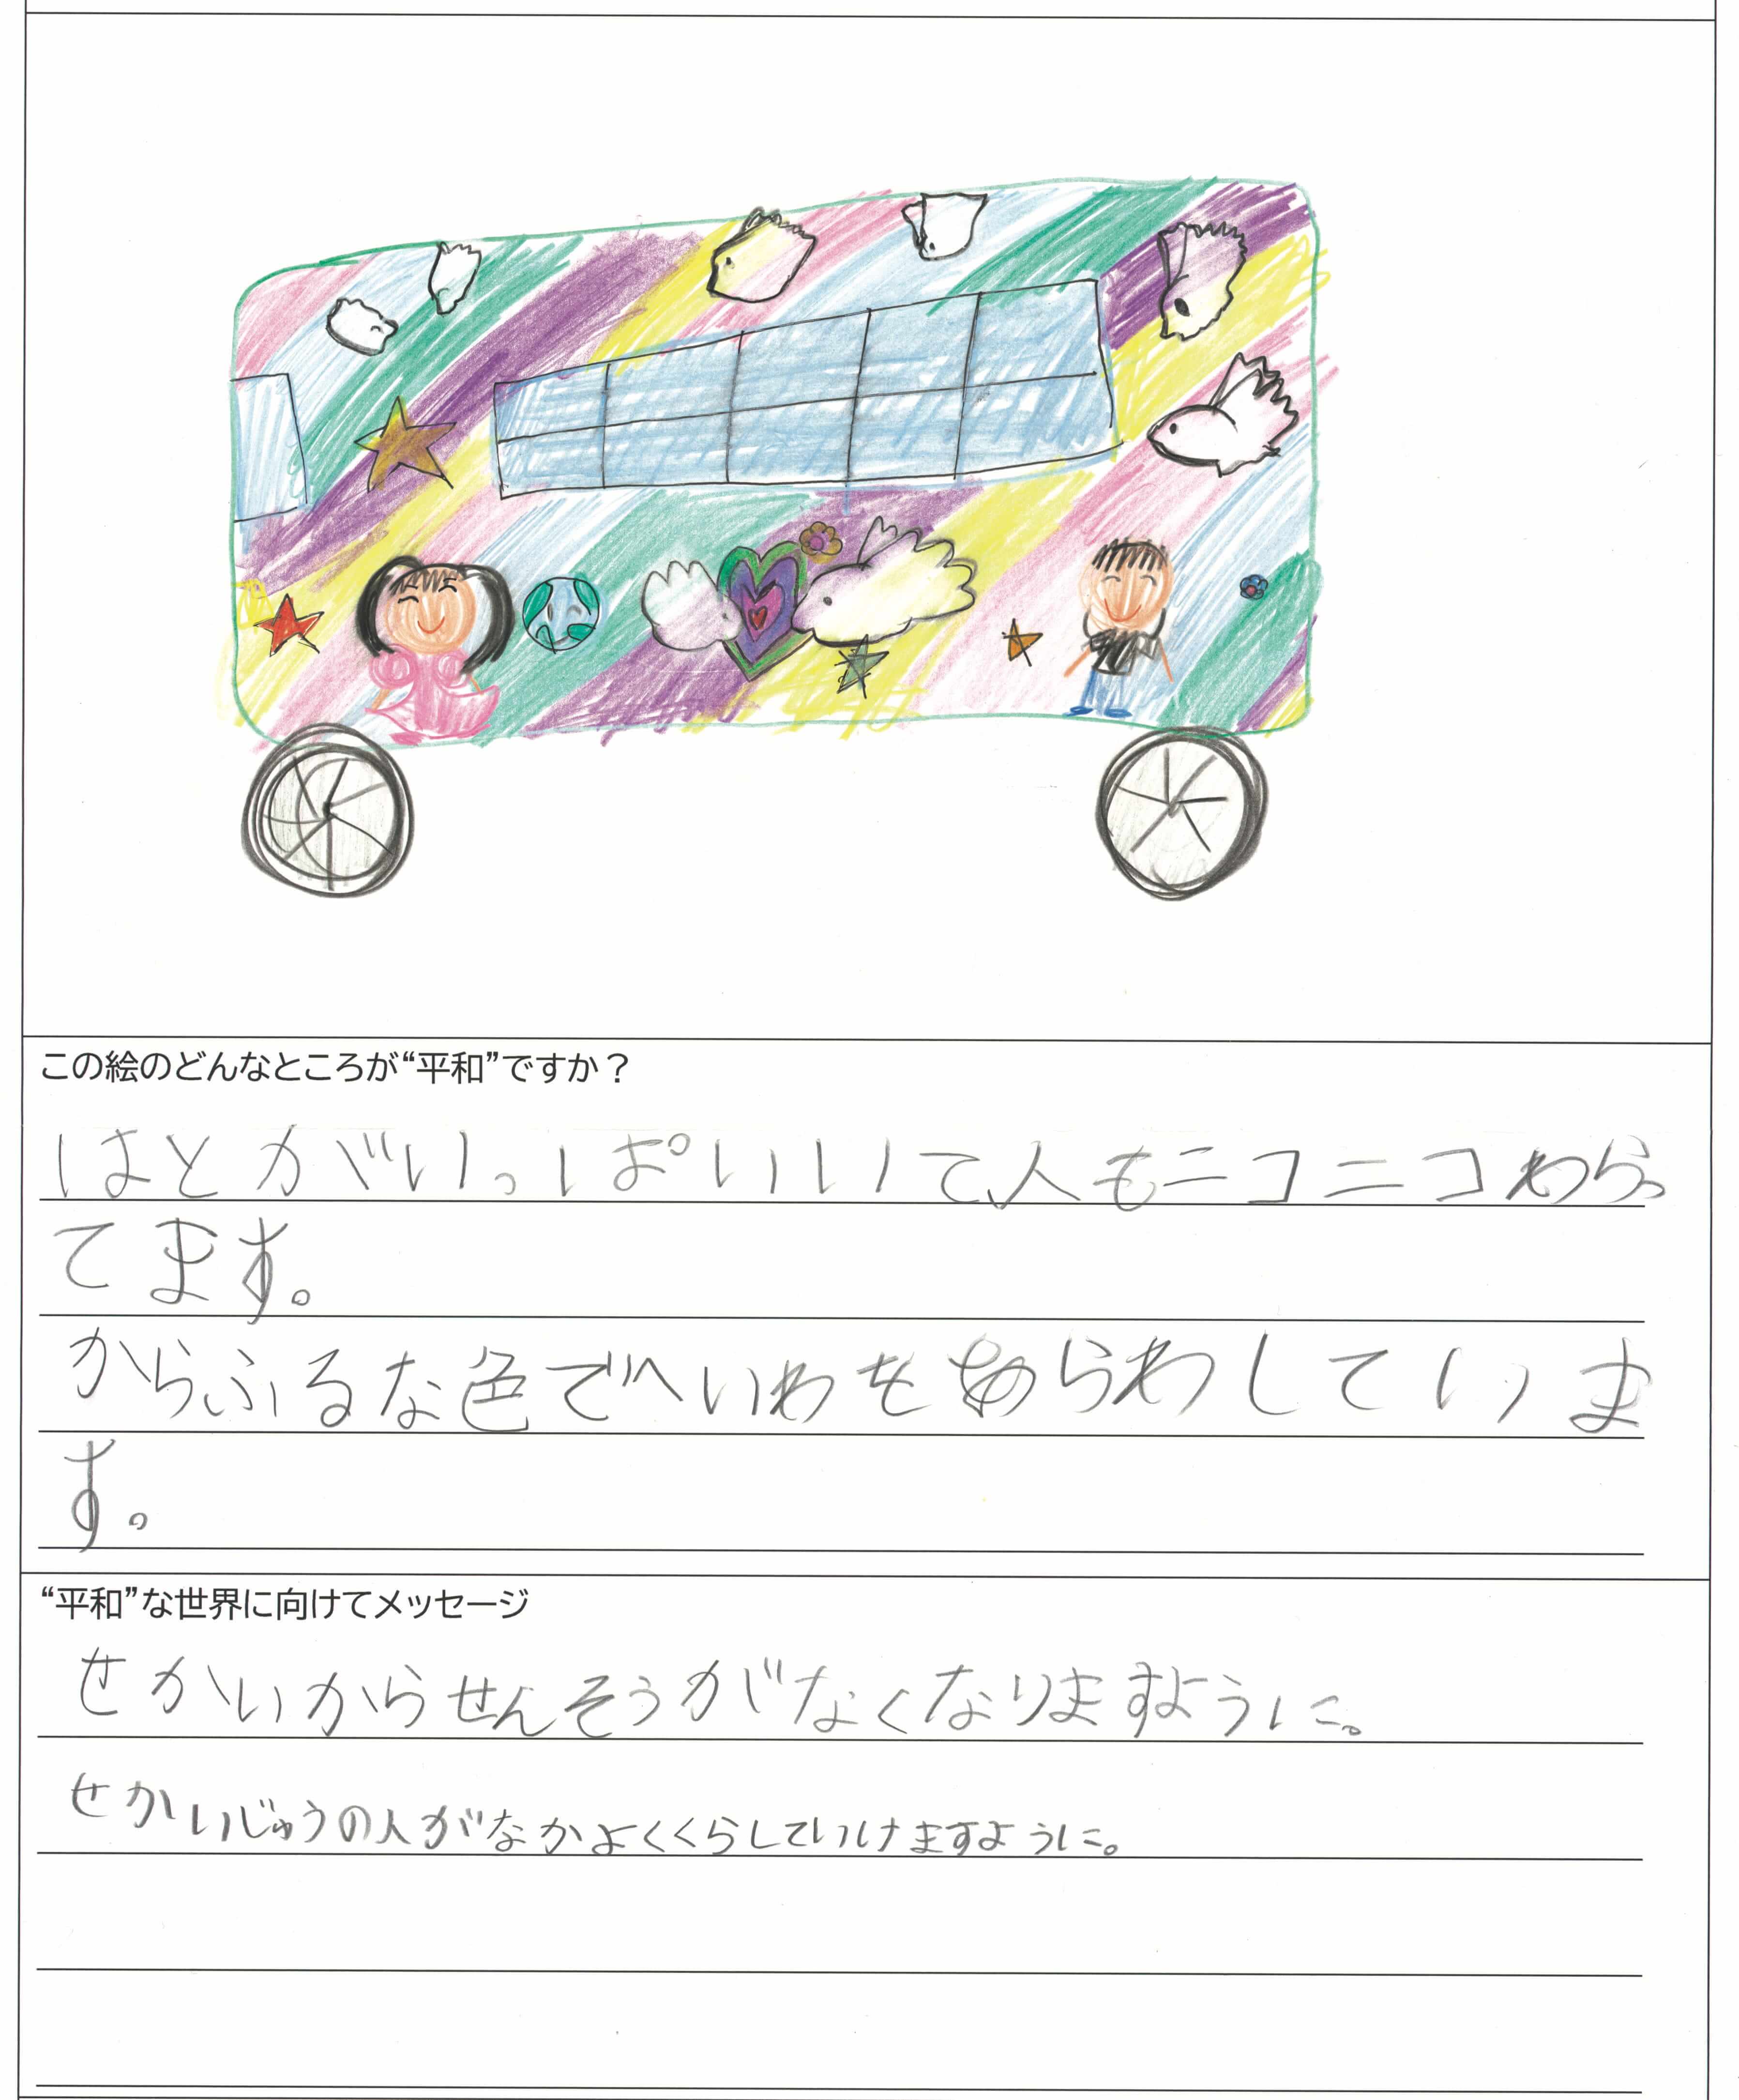 この絵のどんなところが“平和”ですか？
はとがいっぱいいて、人もニコニコわらっ
てます。
からふるな色でへいわをあらわしていま
す。
“平和”な世界に向けてメッセージ
せかいからせんそうがなくなりますように。
せかいじゅうの人がなかよくくらしていけますように。